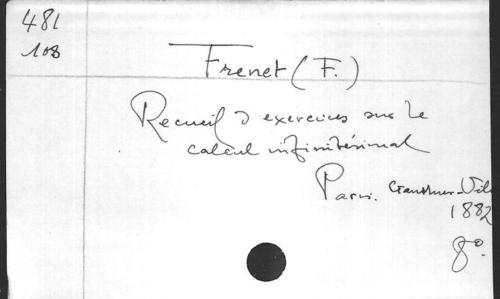 481
108
Frenet (F.)
Recueil d'exercices sur le
calcul infinitésimal
Paris. Gauthier-Vil
1882
8º.